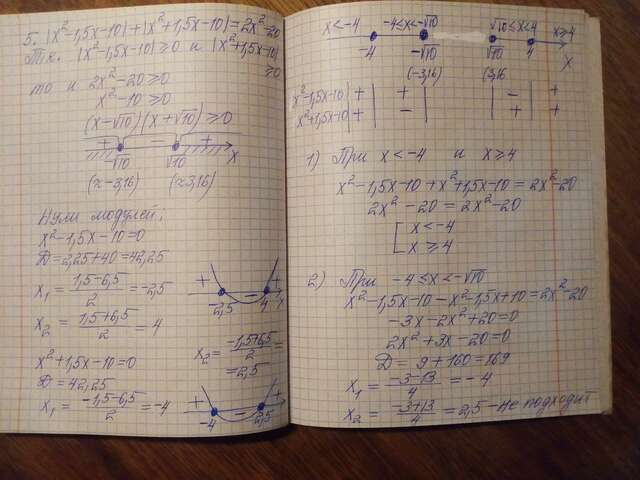 5. |x²-1,5x-10|+|x²+1,5x-10|=2x²-20
Т.к. |x²-1,5x-10|≥0 и |x²+1,5x-10|≥0
то и 2x²-20≥0
x²-10≥0
(x-√10)(x+√10)≥0
+ - +
-√10 √10 x
(≈-3,16) (≈3,16)
Нули модулей:
x²-1,5x-10=0
D=2,25+40=42,25
x₁ = (1,5-6,5)/2 = -2,5
x₂ = (1,5+6,5)/2 = 4
+ - +
-2,5 4 x
x²+1,5x-10=0
D=42,25
x₁ = (-1,5-6,5)/2 = -4
x₂ = (-1,5+6,5)/2 = 2,5
+ - +
-4 2,5
x<-4 -4≤x<-√10 √10≤x<4 x≥4
-4 -√10 √10 4 x
(-3,16) (3,16
x²-1,5x-10 | + | + | | - | +
x²+1,5x-10 | + | - | | + | +
1) При x<-4 и x≥4
x²-1,5x-10+x²+1,5x-10=2x²-20
2x²-20=2x²-20
[ x<-4
x≥4
2) При -4≤x<-√10
x²-1,5x-10-x²-1,5x+10=2x²-20
-3x-2x²+20=0
2x²+3x-20=0
D=9+160=169
x₁ = (-3-13)/4 = -4
x₂ = (-3+13)/4 = 2,5 - не подходит